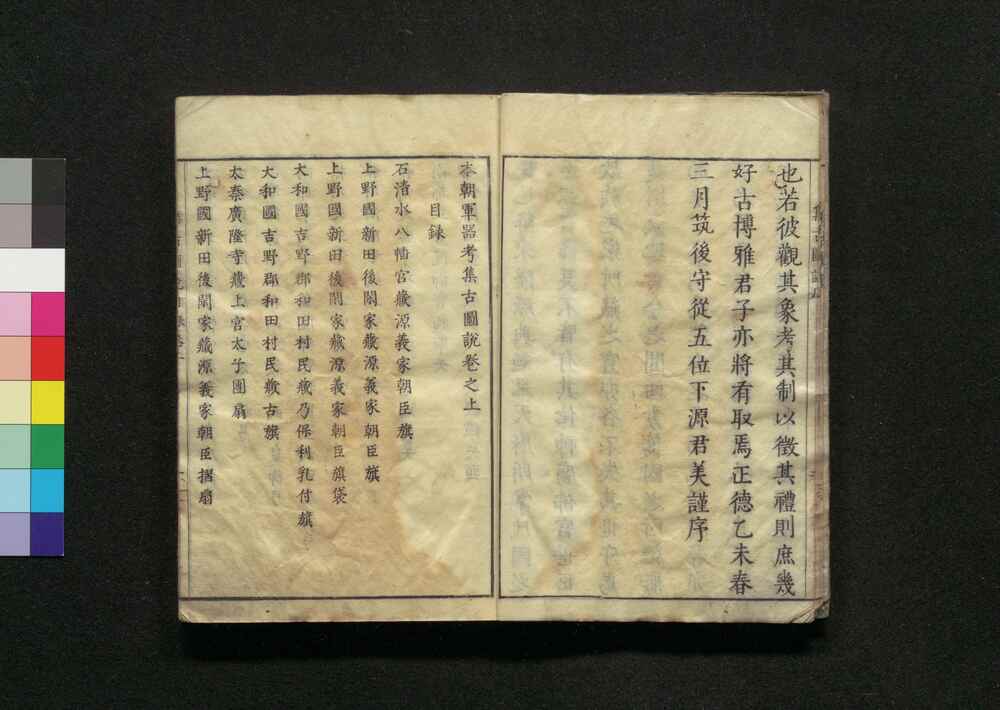 也若彼觀其象考其制以徵其禮則庶幾
好古博雅君子亦將有取焉正德乙未春
三月筑後守從五位下源君美謹序
本朝軍器考集古圖說卷之上
目錄
石清水八幡宮藏源義家朝臣旗
上野國新田後閑家藏源義家朝臣旗
上野國新田後閑家藏源義家朝臣旗袋
大和國吉野郡和田村民藏乃保利乳付旗
大和國吉野郡和田村民藏古旗
太秦廣隆寺藏上宮太子團扇
上野國新田後閑家藏源義家朝臣摺扇